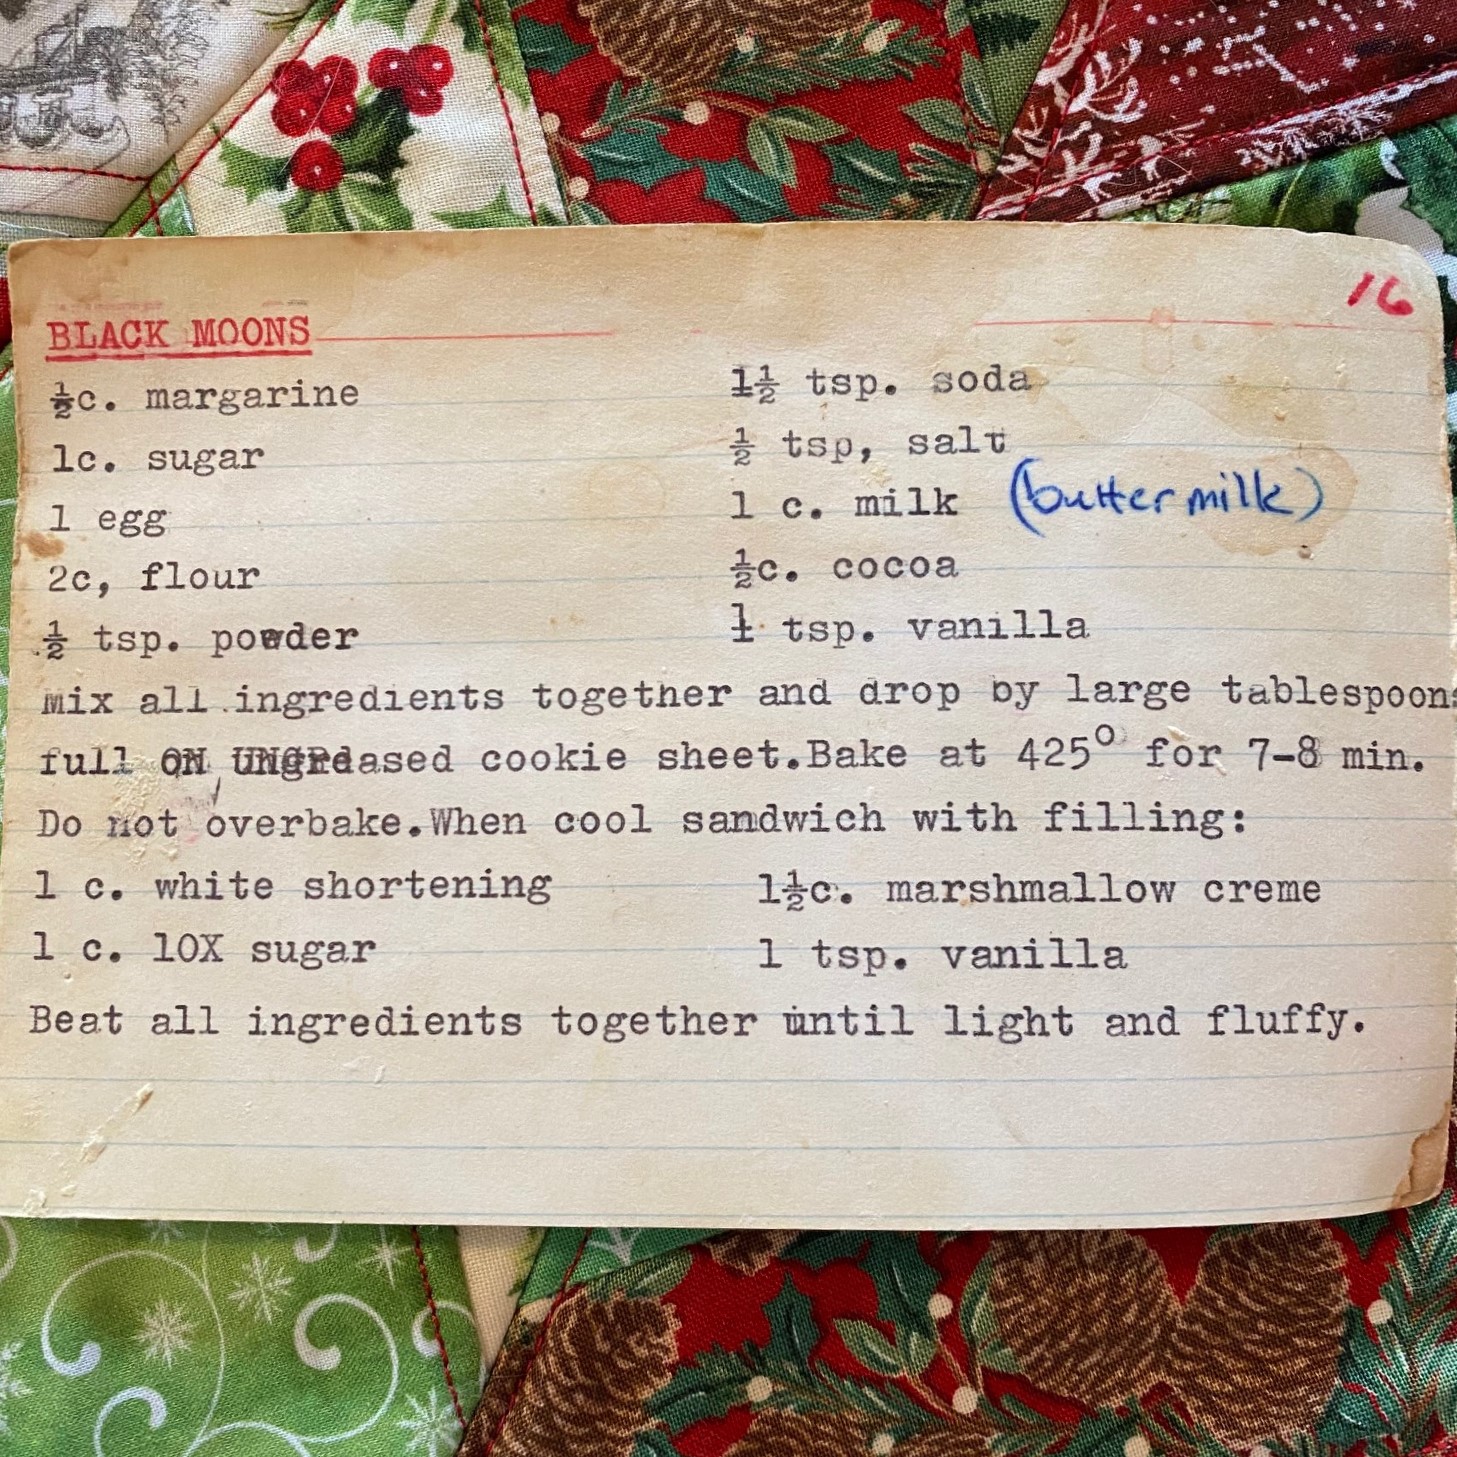 16
BLACK MOONS
½c. margarine
1c. sugar
1 egg
2c, flour
½ tsp. powder
1½ tsp. soda
½ tsp, salt
1 c. milk (buttermilk)
½c. cocoa
1 tsp. vanilla
mix all ingredients together and drop by large tablespoons
full ON UNGReased cookie sheet.Bake at 425° for 7-8 min.
Do not overbake.When cool sandwich with filling:
1 c. white shortening
1 c. 10X sugar
1½c. marshmallow creme
1 tsp. vanilla
Beat all ingredients together until light and fluffy.